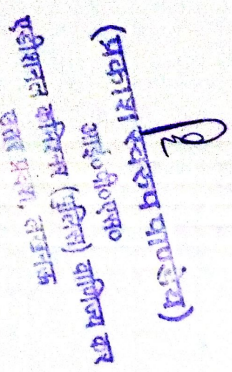 (प्रकाश स्वरूप पाण्डेय)
आई०पी०एस०
एडीशनल कमिश्नर (पुलिस) वाणिज्य कर
उत्तर प्रदेश, लखनऊ